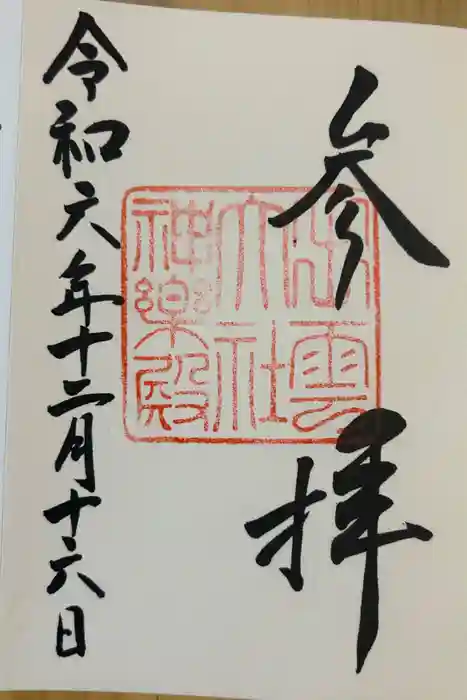 参拝
出雲
大社
神楽殿
令和六年十二月十六日